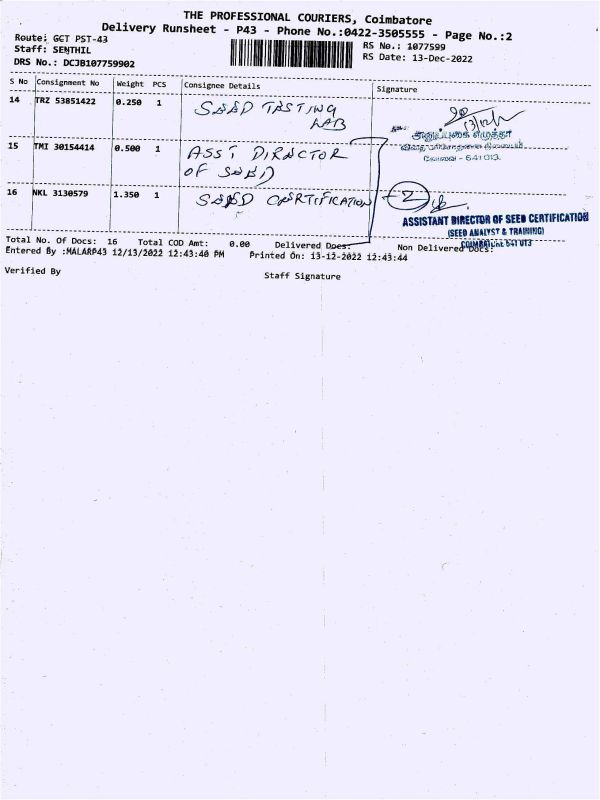 THE PROFESSIONAL COURIERS, Coimbatore
Delivery Runsheet - P43 - Phone No.:0422-3505555 - Page No.:2
Route: GCT PST-43
RS No.: 1077599
Staff: SENTHIL
RS Date: 13-Dec-2022
DRS No.: DCJB107759902
S No Consignment No Weight PCS Consignee Details Signature
14 TRZ 53851422 0.250 1 SEED TESTING
LAB
13/12/
விதை பரிசோதனை நிலையம்
கோவை - 641 013.
15 TMI 30154414 0.500 1 ASST DIRECTOR
OF SEED
16 NKL 3130579 1.350 1 SEED CERTIFICATION
2
ASSISTANT DIRECTOR OF SEED CERTIFICATION
(SEED ANALYST & TRAINING)
COIMBATORE 641 013
Total No. Of Docs: 16 Total COD Amt: 0.00 Delivered Docs: Non Delivered Docs:
Entered By :MALARP43 12/13/2022 12:43:40 PM Printed On: 13-12-2022 12:43:44
Verified By Staff Signature